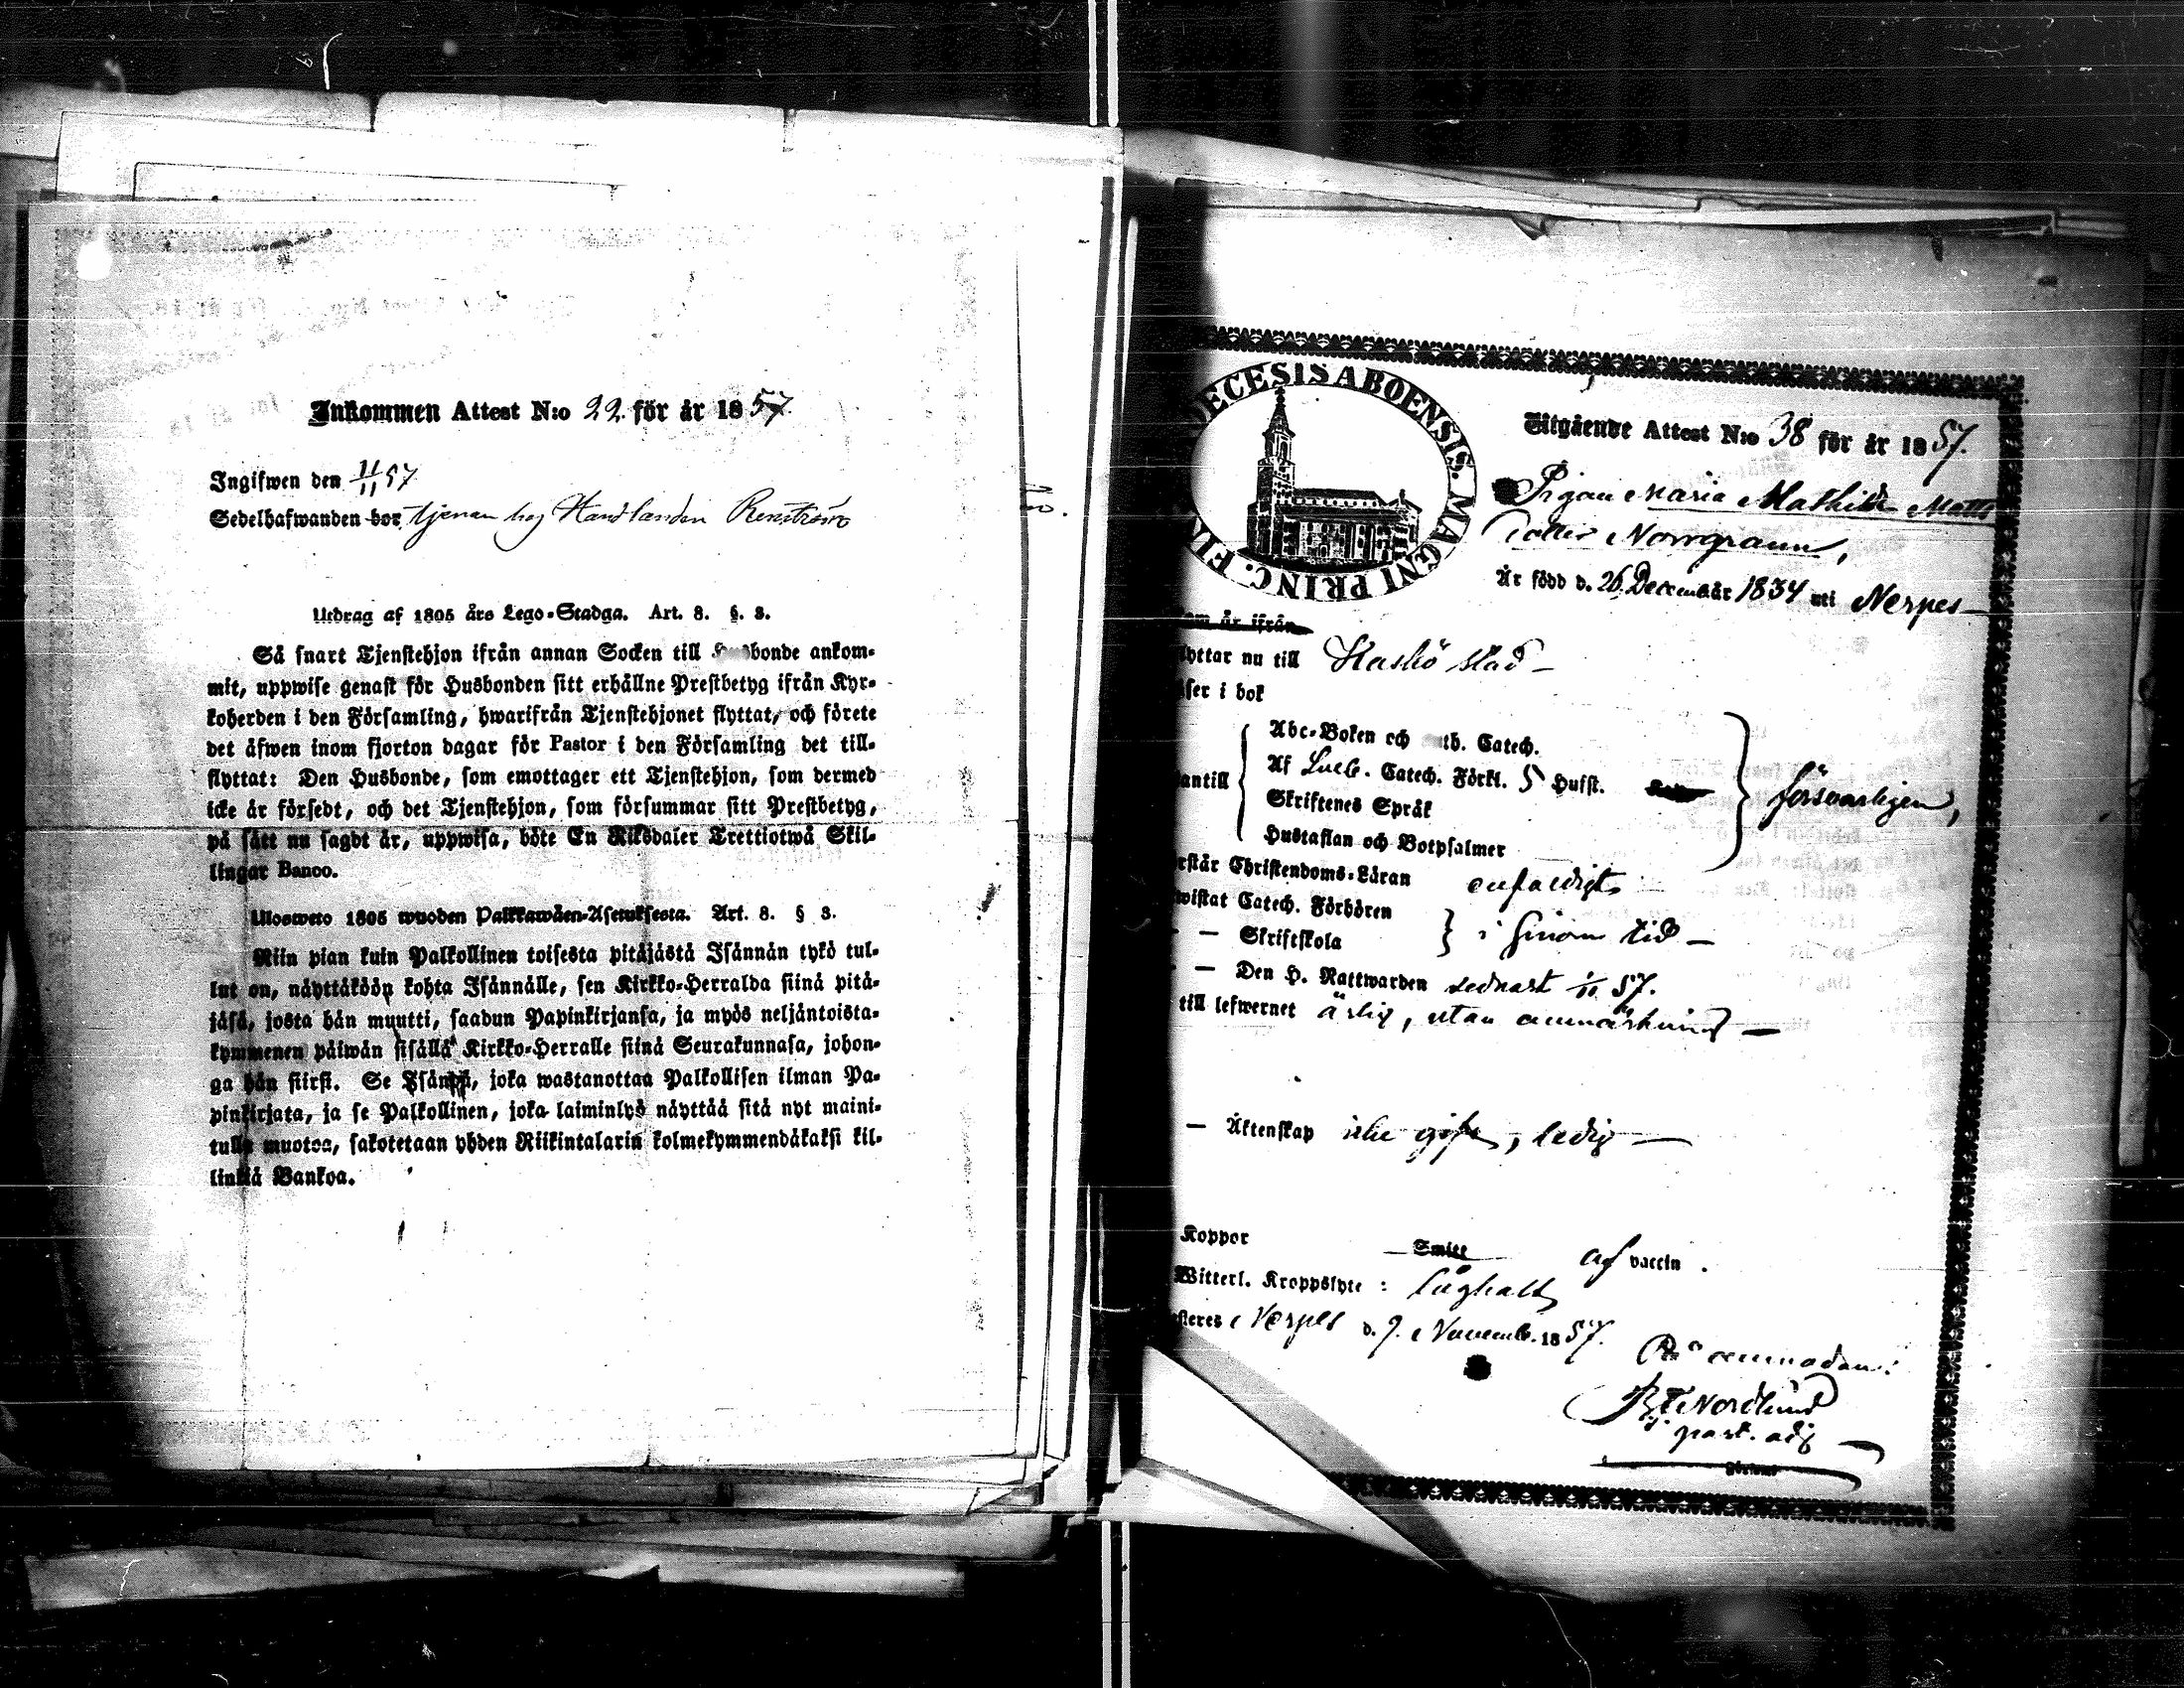 Inkommen Attest N:o 22 för år 1857
Ingifwen den 11/11 57
Sedelhafwanden bor tjenar hos Handlanden Renström
Utdrag af 1805 års Lego-Stadga. Art. 8. §. 3.
Så snart Tjenstehjon ifrån annan Socken till Husbonde ankom-
mit, uppwise genast för Husbonden sitt erhållne Prestbetyg ifrån Kyr-
koherden i den Församling, hwarifrån Tjenstehjonet flyttat, och förete
det äfwen inom fjorton dagar för Pastor i den Församling det till-
flyttat: Den Husbonde, som emottager ett Tjenstehjon, som dermed
icke är försedt, och det Tjenstehjon, som försummar sitt Prestbetyg,
på sätt nu sagdt är, uppwisa, böte En Riksdaler Trettiotwå Skil-
lingar Banco.
Ulosweto 1805 wuoden Palkkawäen-Asetuksesta. Art. 8. § 3.
Niin pian kuin Palkollinen toisesta pitäjästä Isännän tykö tul-
lut on, näyttäköön kohta Isännälle, sen Kirkko-Herralda siinä pitä-
jäsä, josta hän muutti, saadun Papinkirjansa, ja myös neljäntoista-
kymmenen päiwän sisällä Kirkko-Herralle siinä Seurakunnasa, johon-
ga hän siirsi. Se Isäntä, joka wastanottaa Palkollisen ilman Pa-
pinkirjata, ja se Palkollinen, joka laiminlyö näyttää sitä nyt maini-
tulla muotoa, sakotetaan yhden Riikintalarin kolmekymmendäkaksi kil-
linkiä Bankoa.
ECESIS ABOENSIS. MAGNI PRINC. FIN
Utgående Attest N:o 38 för år 1857.
Pigan Maria Mathilda Matts
dotter Norrgrann,
Är född d. 26 December år 1834 uti Nerpes
om är ifrån
lyttar nu till Kaskö stad
äser i bok
antill
Abc-Boken och Luth. Catech.
Af Luth. Catech. Förkl. 5 Hufst.
Skriftenes Språk
Hustaflan och Botpsalmer
försvarligen,
rstår Christendoms-Läran enfaldigt
wistat Catech. Förhören
— Skriftskola
i sinom tid
— Den H. Nattwarden sednast 1/11 57.
till lefwernet ärlig, utan anmärkning
— Äktenskap icke gift, ledig
Koppor Smitt af vaccin.
Witterl. Kroppslyte: låghalt
steres Nerpes d. 9. Novemb. 1857.
Nordlund
past. adj